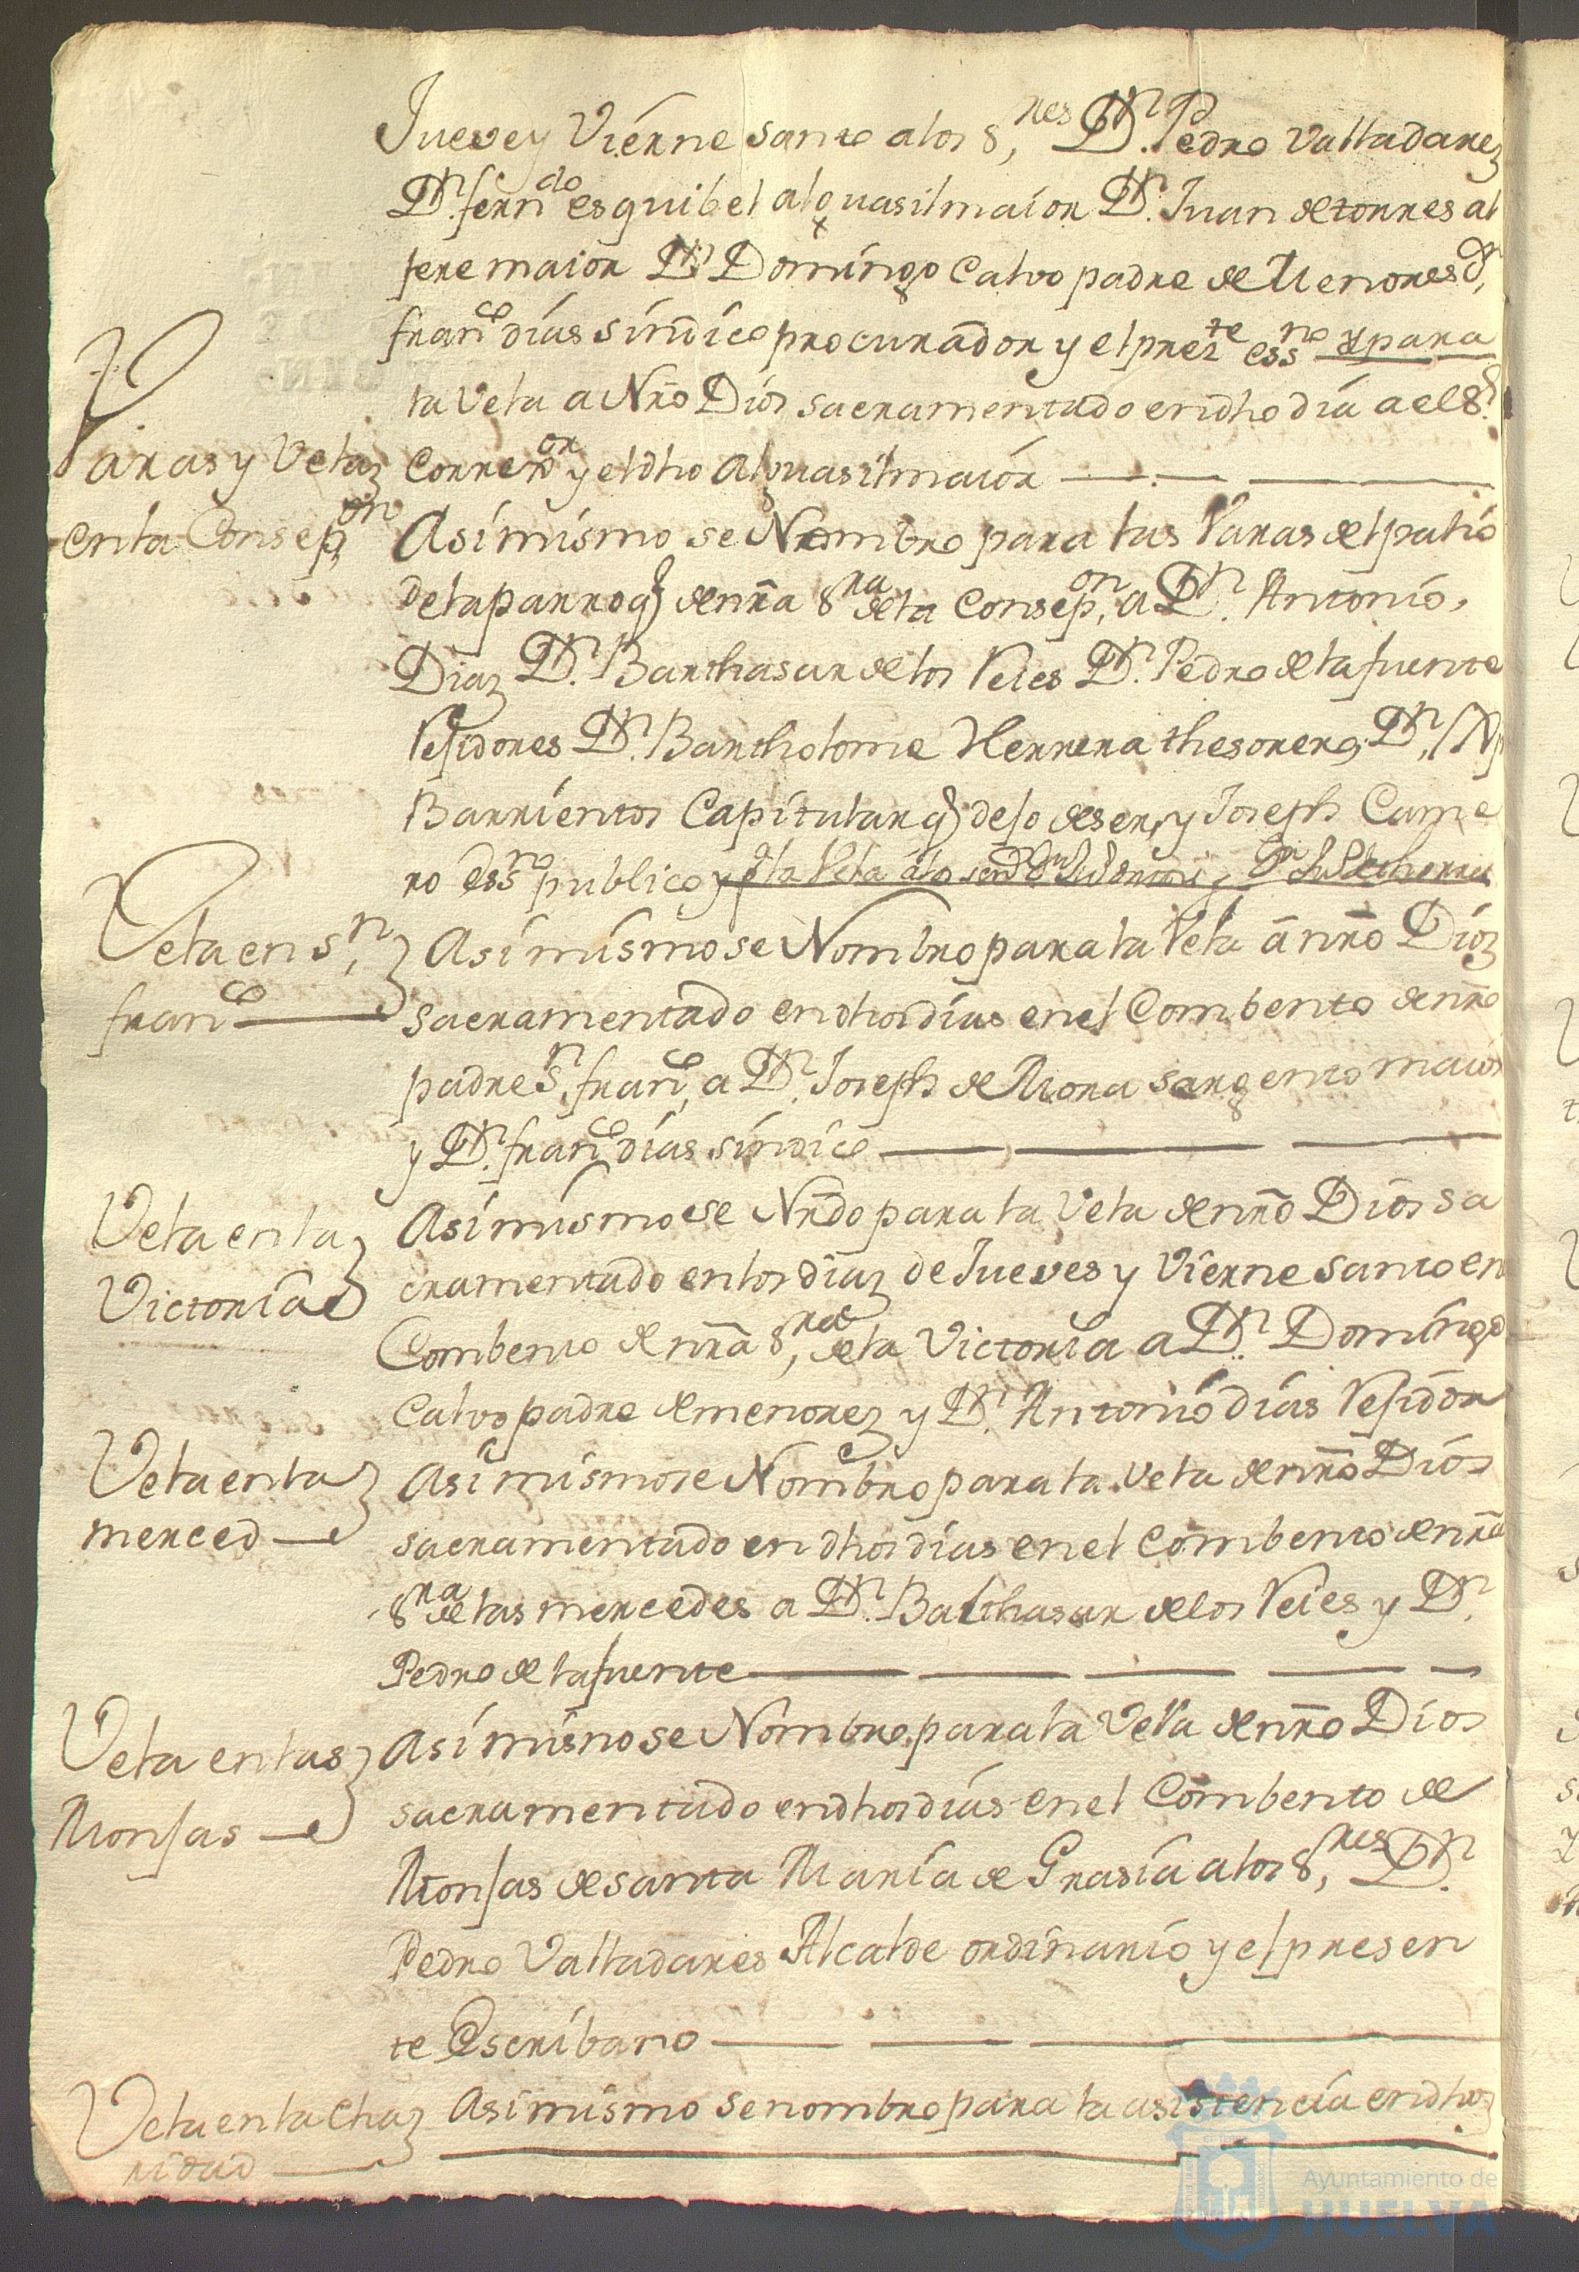 Jueve y Vierne santo a los S.res D.n Pedro Valladarez
D.n fern.do esquibel alguasil maior D.n Juan de torres al
fere maior D.n Domingo Calvo padre de Menores D.n
fran.co dias sindico procurador y el prez.te ess.no y para
la Vela a Nro Dios sacramentado en dho dia a el S.r
Varas y Velaz
Correx.or y el dho Alguasil maior
en la Consep.on
Asi mismo se Nombro para las Varas del patio
de la parroq.l de nra S.ra de la Consep.on a D.n Antonio
Diaz D.n Barthasar de los Reies D.n Pedro de la fuente
Rejidores D.n Bartholome Herrera thesorero D.n
Barrientos Capitular q dejo de ser y Joseph Came
ro ess.no publico y p.a la Vela a los
Vela en S.n
Asi mismo se Nombro para la Vela a nro Dioz
fran.co
sacramentado en dhos dias en el Combento de nro
padre S.n fran.co a D.n Joseph de Mora sargento maior
y D.n fran.co dias sindico
Vela en la
Asi mismo se Nrdo para la Vela de nro Dios sa
Victoria
cramentado en los diaz de Jueves y Vierne santo en
Combento de nra S.ra de la Victoria a D.n Domingo
Calvo padre de menorez y D.n Antonio dias Rejidor
Vela en la
Asi mismo se Nombro para la Vela de nro Dios
merced
sacramentado en dhos dias en el Combento de nra
S.ra de las mercedes a D.n Balthasar de los Reies y D.n
Pedro de la fuente
Vela en las
Asi mismo se Nombro para la Vela de nro Dios
Monjas
sacramentado en dhos dias en el Combento de
Monjas de santa Maria de Grasia a los S.res D.n
Pedro Valladares Alcalde ordinario y el presen
te Escribano
Vela en la Cha
Asi mismo se nombro para la asistencia en dhoz
ridad
Ayuntamiento de
HUELVA